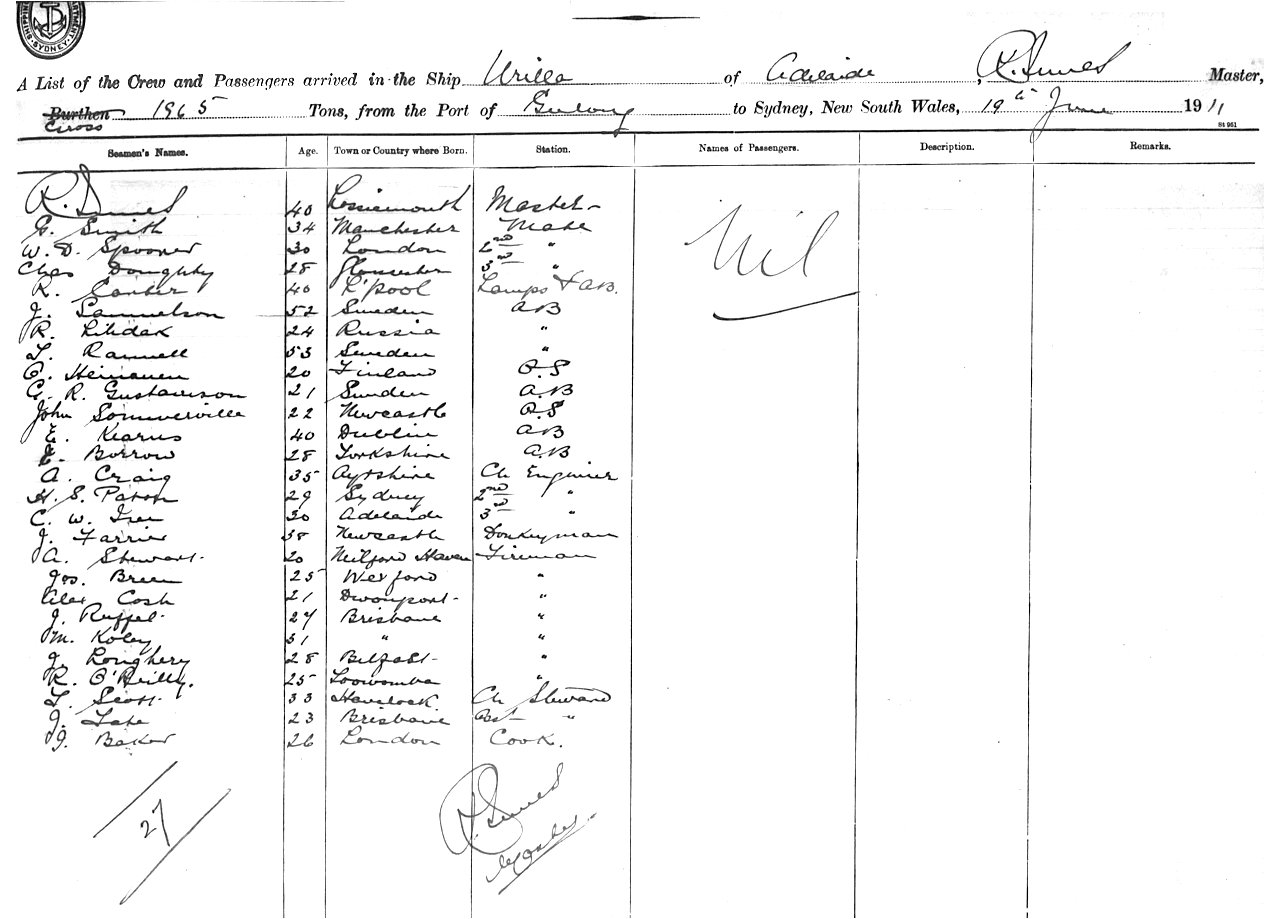 SHIPPING DEPARTMENT
SYDNEY
A List of the Crew and Passengers arrived in the Ship Urilla of Adelaide, R. Innes Master,
Burthen Gross 1965 Tons, from the Port of Geelong to Sydney, New South Wales, 19th June 1911
St 951
Seamen's Names. Age. Town or Country where Born. Station. Names of Passengers. Description. Remarks.
R. Innes 40 Lossiemouth Master
G. Smith 34 Manchester Mate Nil
W. D. Spooner 30 London 2nd "
Chas Doughty 28 Gloucester 3rd "
R. Carter 40 L'pool Lamps & AB.
J. Samuelson 52 Sweden AB
R. 24 Russia "
53 Sweden "
Heinanen 20 Finland O.S
G. R. Gustavson 21 Sweden A.B
John Sommerville 22 Newcastle O.S
E. Kearns 40 Dublin AB
E. Borrow 28 Yorkshire A.B
A. Craig 35 Ayrshire Ch Enginier
H. S. Paton 29 Sydney 2nd "
C. W. 30 Adelaide 3rd "
J. Farrier 38 Newcastle Donkeyman
A. Stewart 20 Milford Haven Fireman
Jos. Breen 25 Wexford "
Alex Cosh 21 Devonport "
J. Ruffel 27 Brisbane "
M. Koley 31 " "
J. Loughery 28 Belfast "
R. O'Reilly. 25 Toowomba "
T. Scott 33 Havelock Ch Steward
J. Tate 23 Brisbane "
J. Baker 26 London Cook.
27 R. Innes
Master.